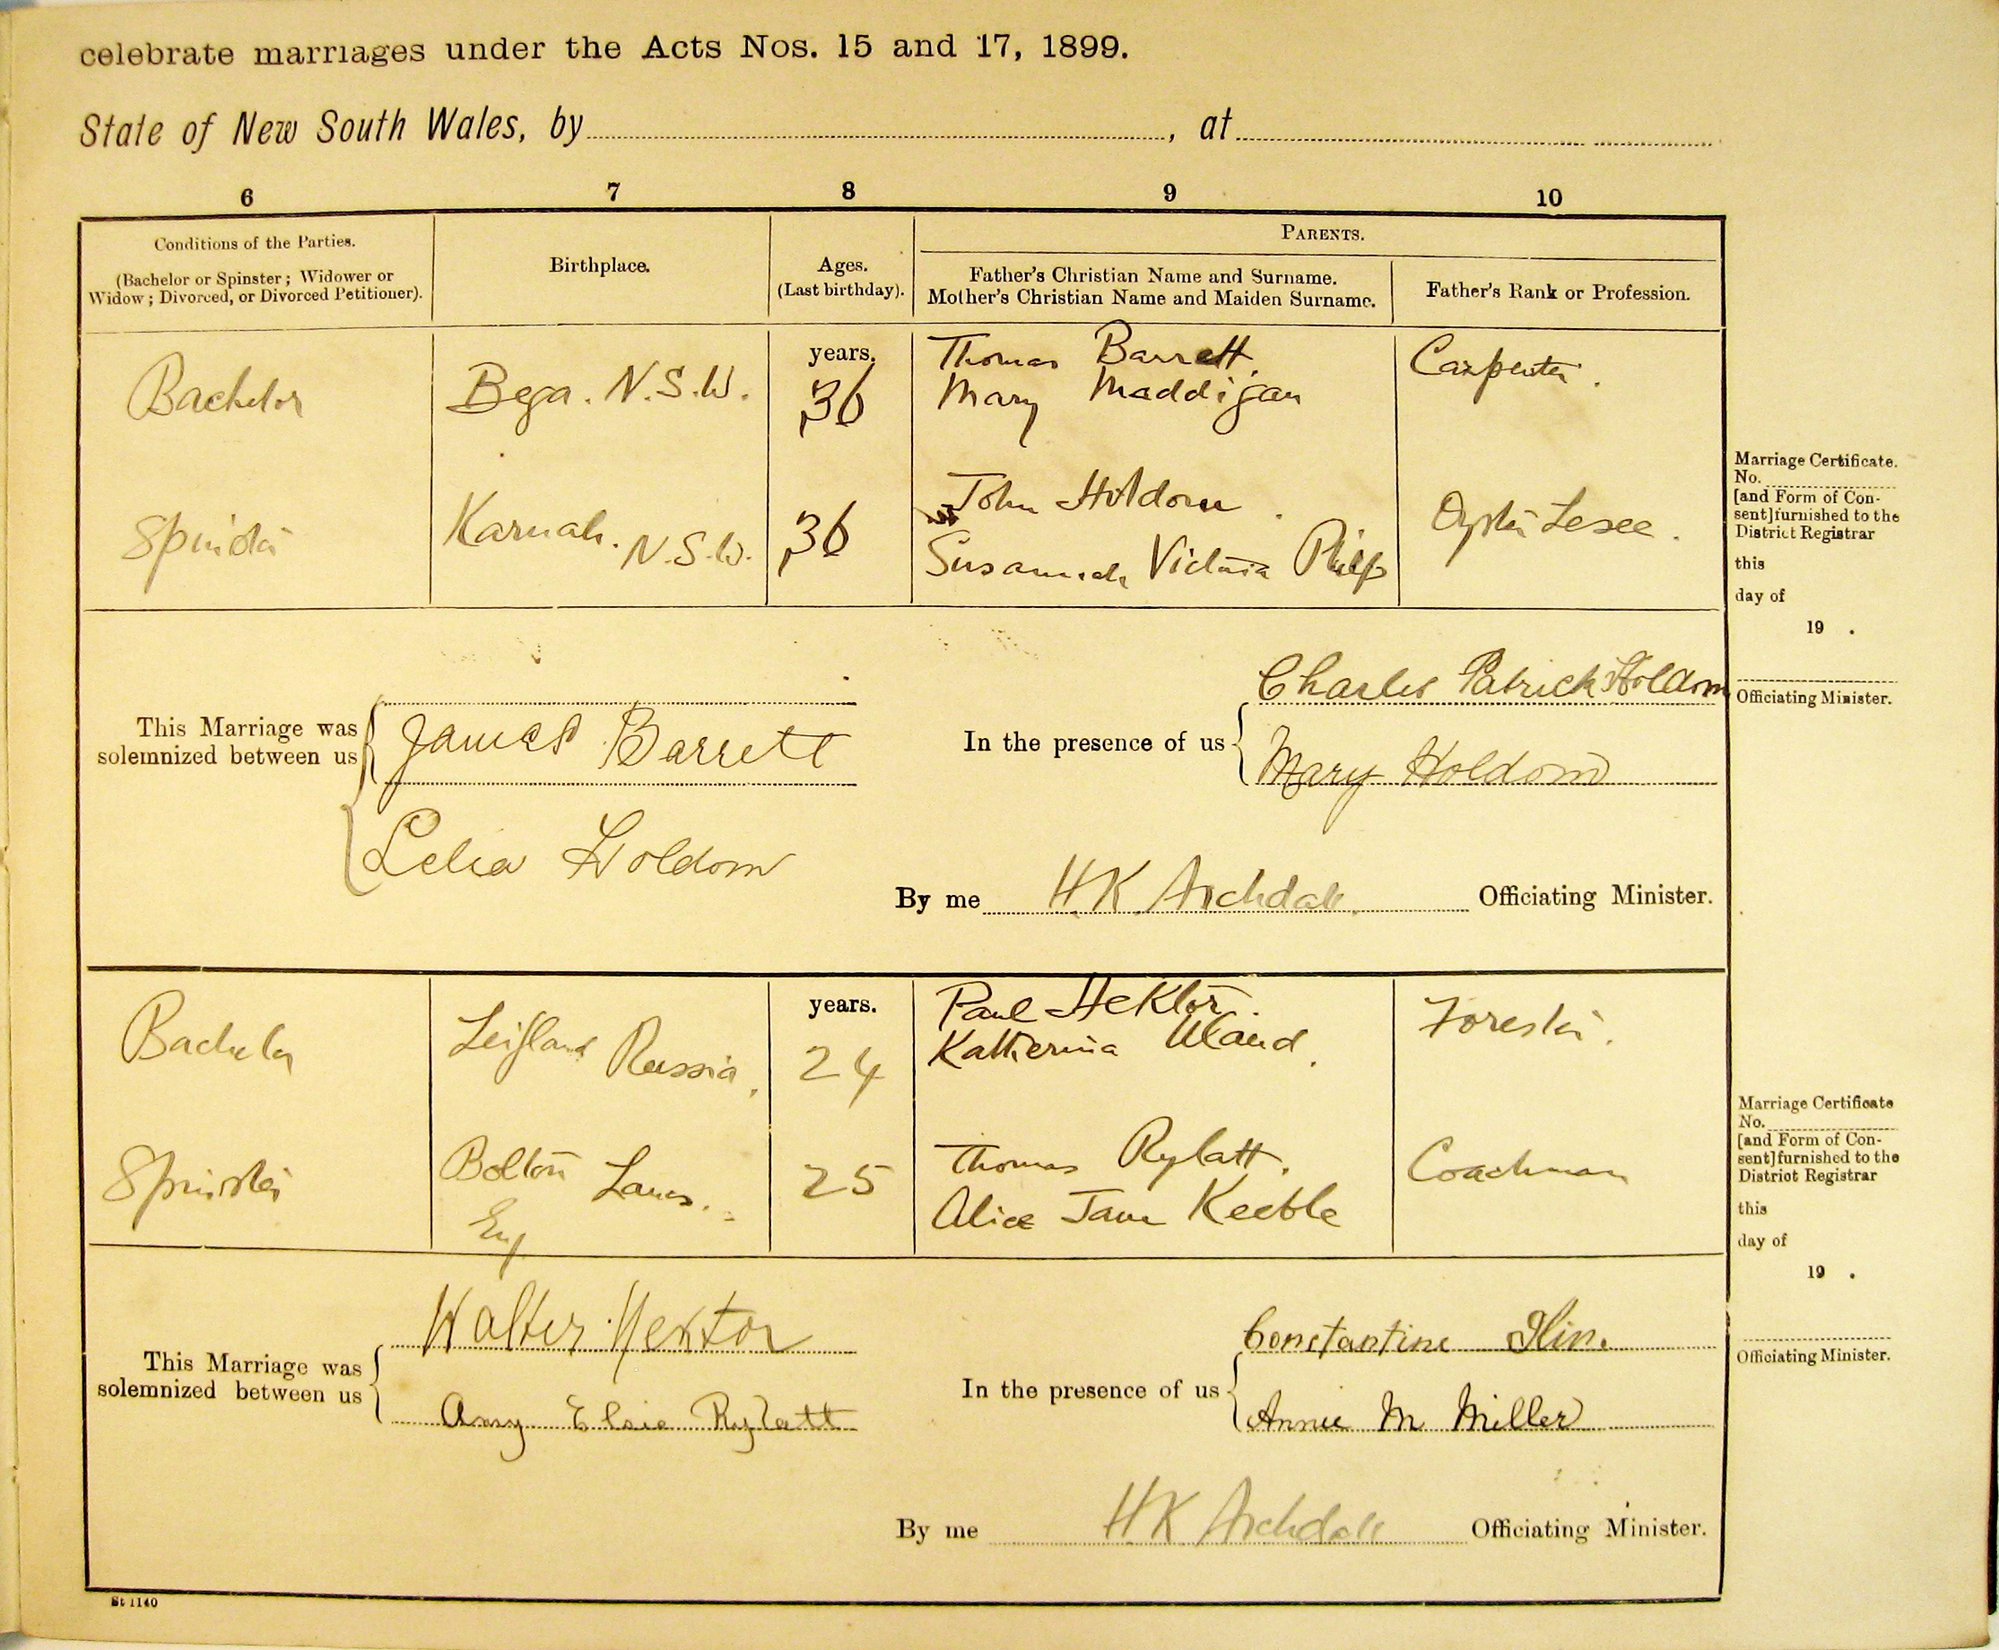 celebrate marriages under the Acts Nos. 15 and 17, 1899.
State of New South Wales, by , at
6 7 8 9 10
Conditions of the Parties.
(Bachelor or Spinster; Widower or
Widow; Divorced, or Divorced Petitioner).
Birthplace.
Ages.
(Last birthday).
PARENTS.
Father's Christian Name and Surname.
Mother's Christian Name and Maiden Surname.
Father's Rank or Profession.
Bachelor
Bega. N.S.W.
years.
36
Thomas Barrett
Mary Maddigan
Carpenter.
Spinster
Karuah. N.S.W.
36
John Holdom
Susannah Victoria Philp
Oyster Lesee.
Marriage Certificate.
No.
[and Form of Con-
sent] furnished to the
District Registrar
this
day of
19 .
Officiating Minister.
This Marriage was
solemnized between us
James Barrett
Lelia Holdom
In the presence of us
Charles Patrick Holdom
Mary Holdom
By me H.K. Archdall Officiating Minister.
Bachelor
Leifland Russia.
years.
24
Paul Hektor.
Katherina
Forester.
Spinster
Bolton Lancs.
Eng
25
Thomas Rylatt.
Alice Jane Keeble
Coachman
Marriage Certificate
No.
[and Form of Con-
sent] furnished to the
District Registrar
this
day of
19 .
Officiating Minister.
This Marriage was
solemnized between us
Walter Hektor
Amy Elsie Rylatt
In the presence of us
Constantine Ilin.
Annie M Miller
By me HK Archdall Officiating Minister.
St 1140